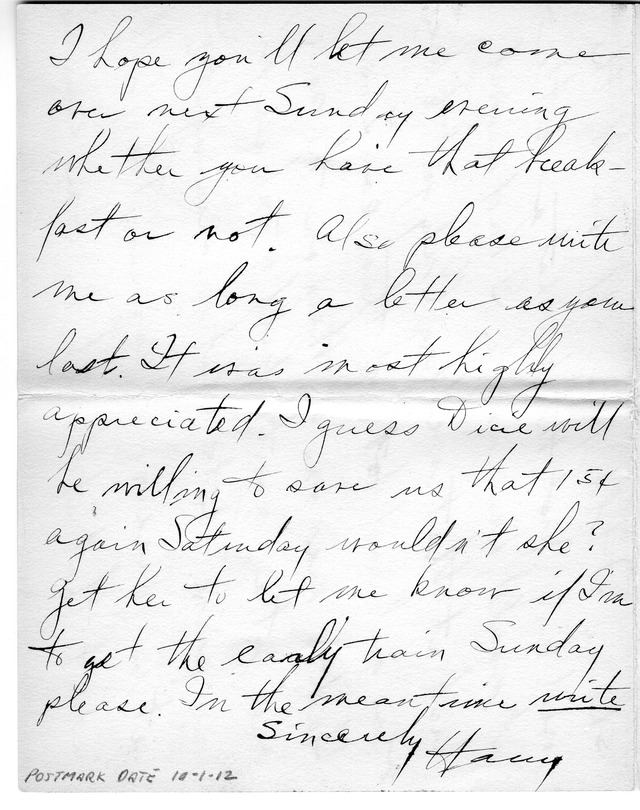 I hope you'll let me come
over next Sunday evening
whether you have that break-
fast or not. Also please write
me as long a letter as your
last. It was most highly
appreciated. I guess Dicie will
be willing to save us that 15¢
again Saturday wouldn't she?
Get her to let me know if I'm
to get the early train Sunday
please. In the meantime write
Sincerely
Harry
POSTMARK DATE 10-1-12